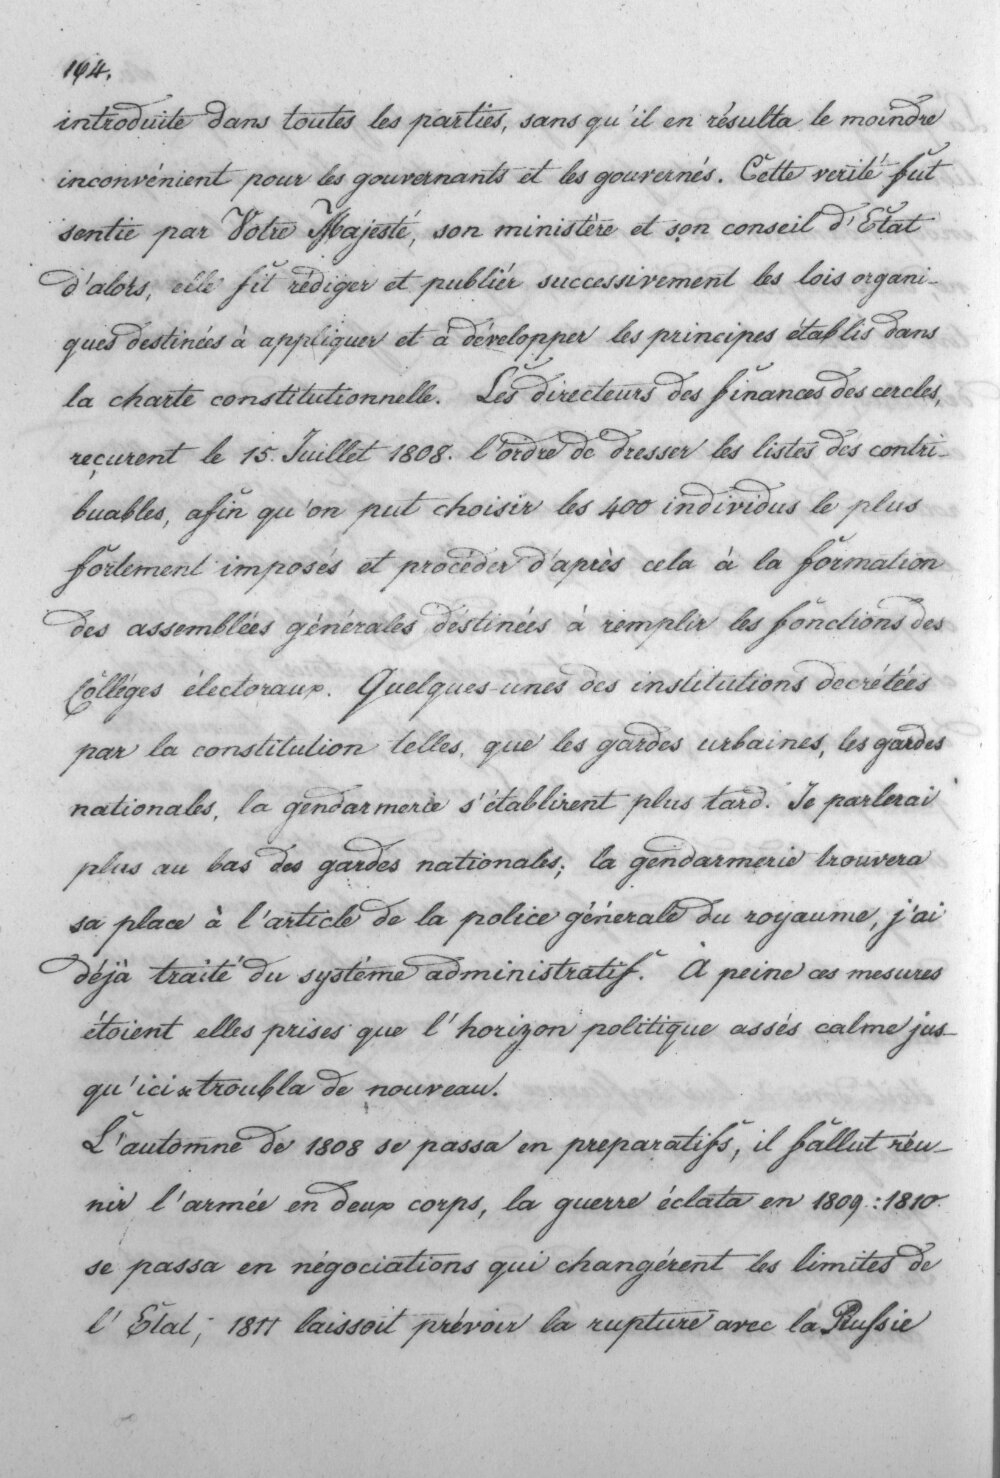 194.
introduite dans toutes les parties, sans qu'il en résulta le moindre
inconvénient pour les gouvernants et les gouvernés. Cette verité fut
sentie par Votre Majesté, son ministère et son conseil d'Etat
d'alors, elle fit rédiger et publiér successivement les lois organi-
ques destinées à appliquer et à développer les principes établis dans
la charte constitutionnelle. Les directeurs des finances des cercles,
reçurent le 15. Juillet 1808. l'ordre de dresser les listes des contri-
buables, afin qu'on put choisir les 400 individus le plus
fortement imposés et procéder d'après cela à la formation
des assemblées générales déstinées à remplir les fonctions des
Colléges électoraux. Quelques-unes des institutions decrétées
par la constitution telles, que les gardes urbaines, les gardes
nationales, la gendarmerie s'établirent plus tard. Je parlerai
plus au bas des gardes nationales; la gendarmerie trouvera
sa place à l'article de la police génerale du royaume, j'ai
déjà traité du systéme administratif. À peine ces mesures
étoient elles prises que l'horizon politique assés calme jus-
qu'ici se troubla de nouveau.
L'automne de 1808 se passa en preparatifs, il fallut réu-
nir l'armée en deux corps, la guerre éclata en 1809 : 1810
se passa en négociations qui changérent les limites de
l'Etat; 1811 laissoit prévoir la rupture avec la Russie